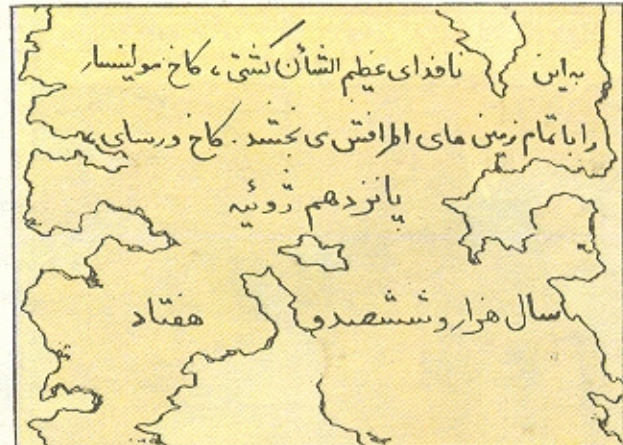 به این نافدای عظیم الشأن کشتی، کاخ مولینسار
را با تمام زمین های اطرافش می بخشد. کاخ ورسای،
پانزدهم ژوئیه
سال هزار و ششصد و هفتاد